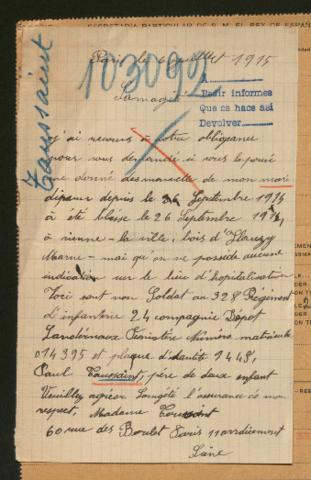 SECRETARIA PARTICULAR DE S. M. EL REY DE ESPAÑA
Paris le 6 Juillet 1915
103092
Toussaint
Pedir informes
Que se hace así
Devolver
j'ai recours à votre obligeance
pour vous demander si vous le pouvé
me donné des nouvelle de mon mari
disparu depuis le Septembre 1914
à été blessé le 26 Septembre 1914
à vienne-la-ville, bois d'Hauzy
Marne - mai qu'on ne possede aucune
indication sur le lieu d'hopitalisation
Voici sont nom Soldat au 328 Régiment
d'infanterie 24 compagnie Dépot
Landerneaux Finistère Numéro matricule
014395 et plaque d'idantité 1448,
Paul Toussaint, père de deux enfant
Veuillez agréer l'assurance de mon
respect, Madame Toussaint
60 rue des Boulet Paris 11 arrdicement
Seine